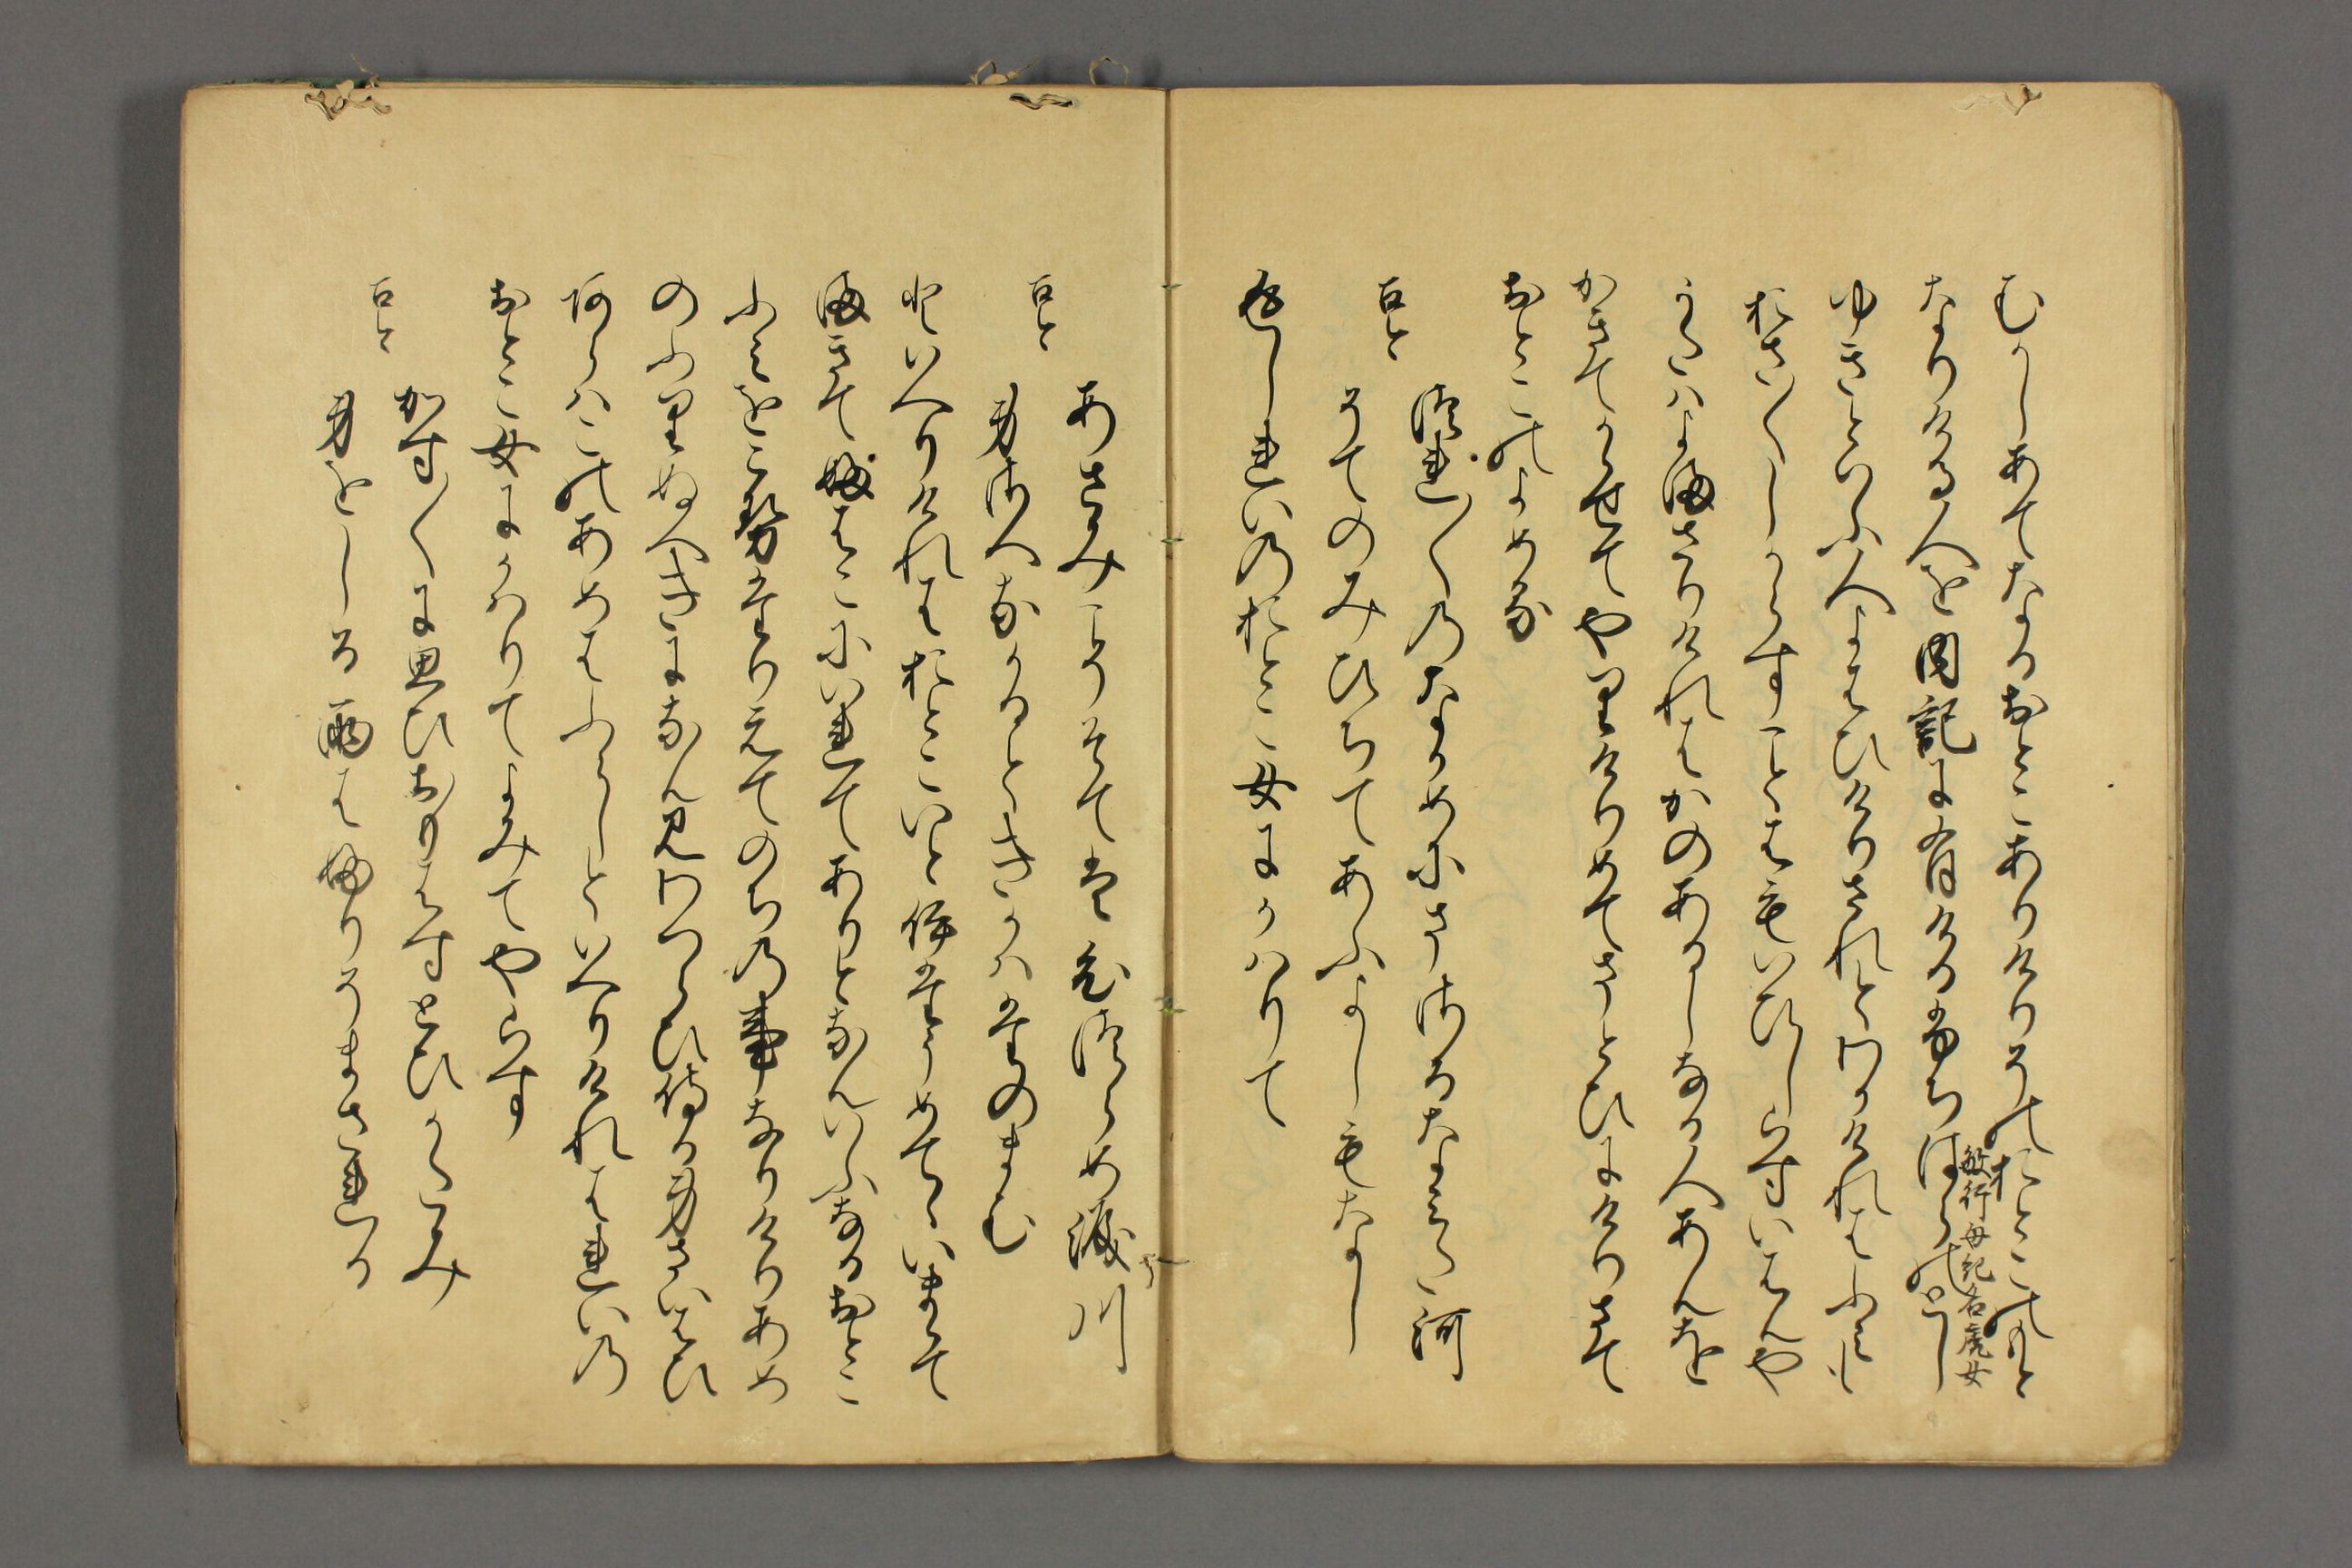 むかしあてなるおとこありけりそのおとこのもと
なりける人を内記に有けるふちはらのとし
敏行母紀名虎女
ゆきといふ人よはひけりされとわかけれはふみも
おさ〳〵しからすことはもいひしらすいはんや
うたはよまさりけれはかのあるしなる人あんを
かきてかゝせてやりけりめてまとひにけりさて
おとこのよめる
古今
つれ〳〵のなかめにまさるなみた河
そてのみひちてあふよしもなし
返しれいのおとこ女にかはりて
あさみこそそては ひつらめ涙川
古今
身さへなかるときかはたのまむ
といへりけれはおとこいといたうめてゝいまて
まきてふはこにいれてありとなんいふなるおとこ
ふみをこせたりえてのちの事なりけりあめ
のふりぬへきになん見わつらひ侍る身さいはひ
あらはこのあめはふらしといへりけれはれいの
おとこ女にかはりてよみてやらす
かす〳〵に思ひおもはすとひかたみ
古今
身をしる雨はふりそまされる